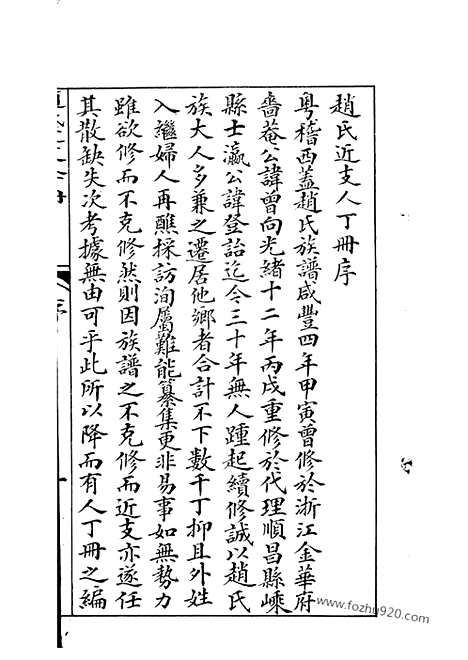 趙氏近支人丁冊序
粤稽西蓋趙氏族譜咸豐四年甲寅曾修於浙江金華府
嗇菴公諱曾向光緒十二年丙戌重修於代理順昌縣嵊
縣士瀛公諱登詒迄今三十年無人踵起續修誠以趙氏
族大人多兼之遷居他鄉者合計不下數千丁抑且外姓
入繼婦人再醮採訪洵屬難能纂集更非易事如無勢力
雖欲修而不克修然則因族譜之不克修而近支亦遂任
其散缺失次考據無由可乎此所以降而有人丁冊之編
序
一
www.fozhu920.com